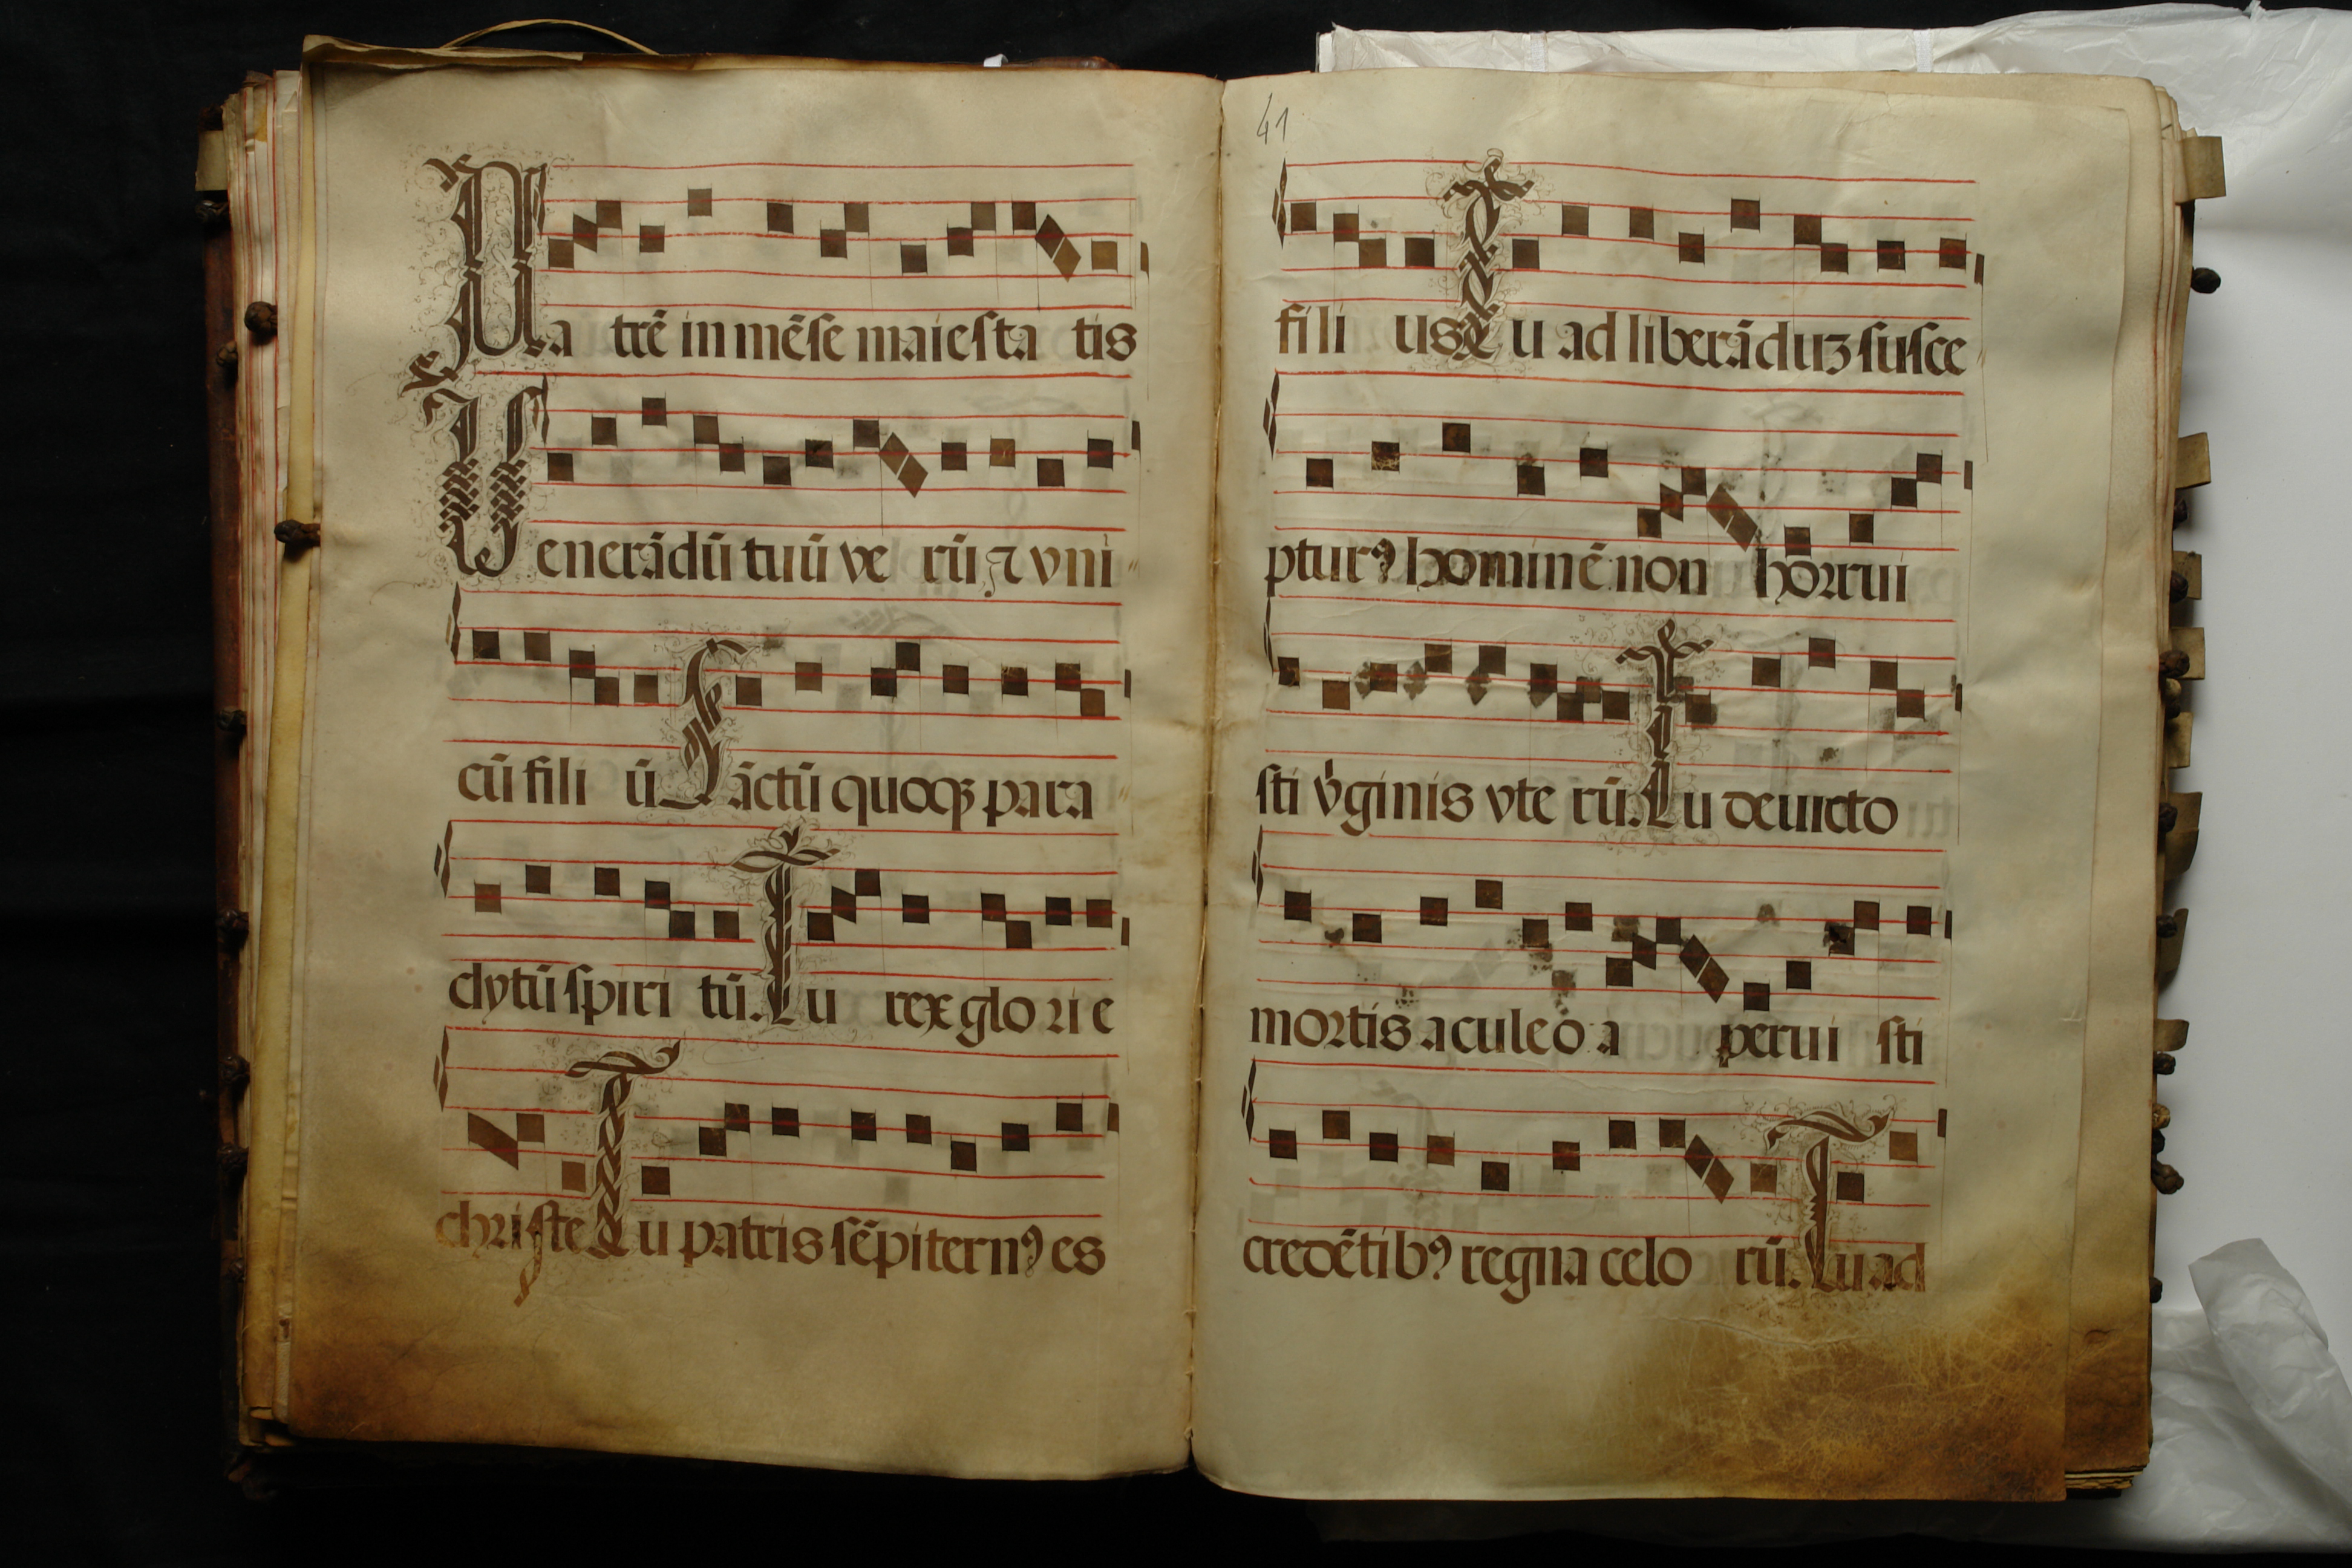 Pa trē in mēſe maieſta tis
Venerādū tuū ve rū ⁊ vni
cū fili ū Sāctū quoqꝫ para
clytū ſpiri tū. Tu rex glo ꝛi e
chꝛiſte Tu patris ſēpiternꝰ es
41
fili us Tu ad liberāduꝫ ſuſce
pturꝰ hominē non hoꝛꝛui
ſti v̓ginis vte rū. Tu deuicto
moꝛtis aculeo a perui ſti
credētibꝰ regna celo rū. Tu ad